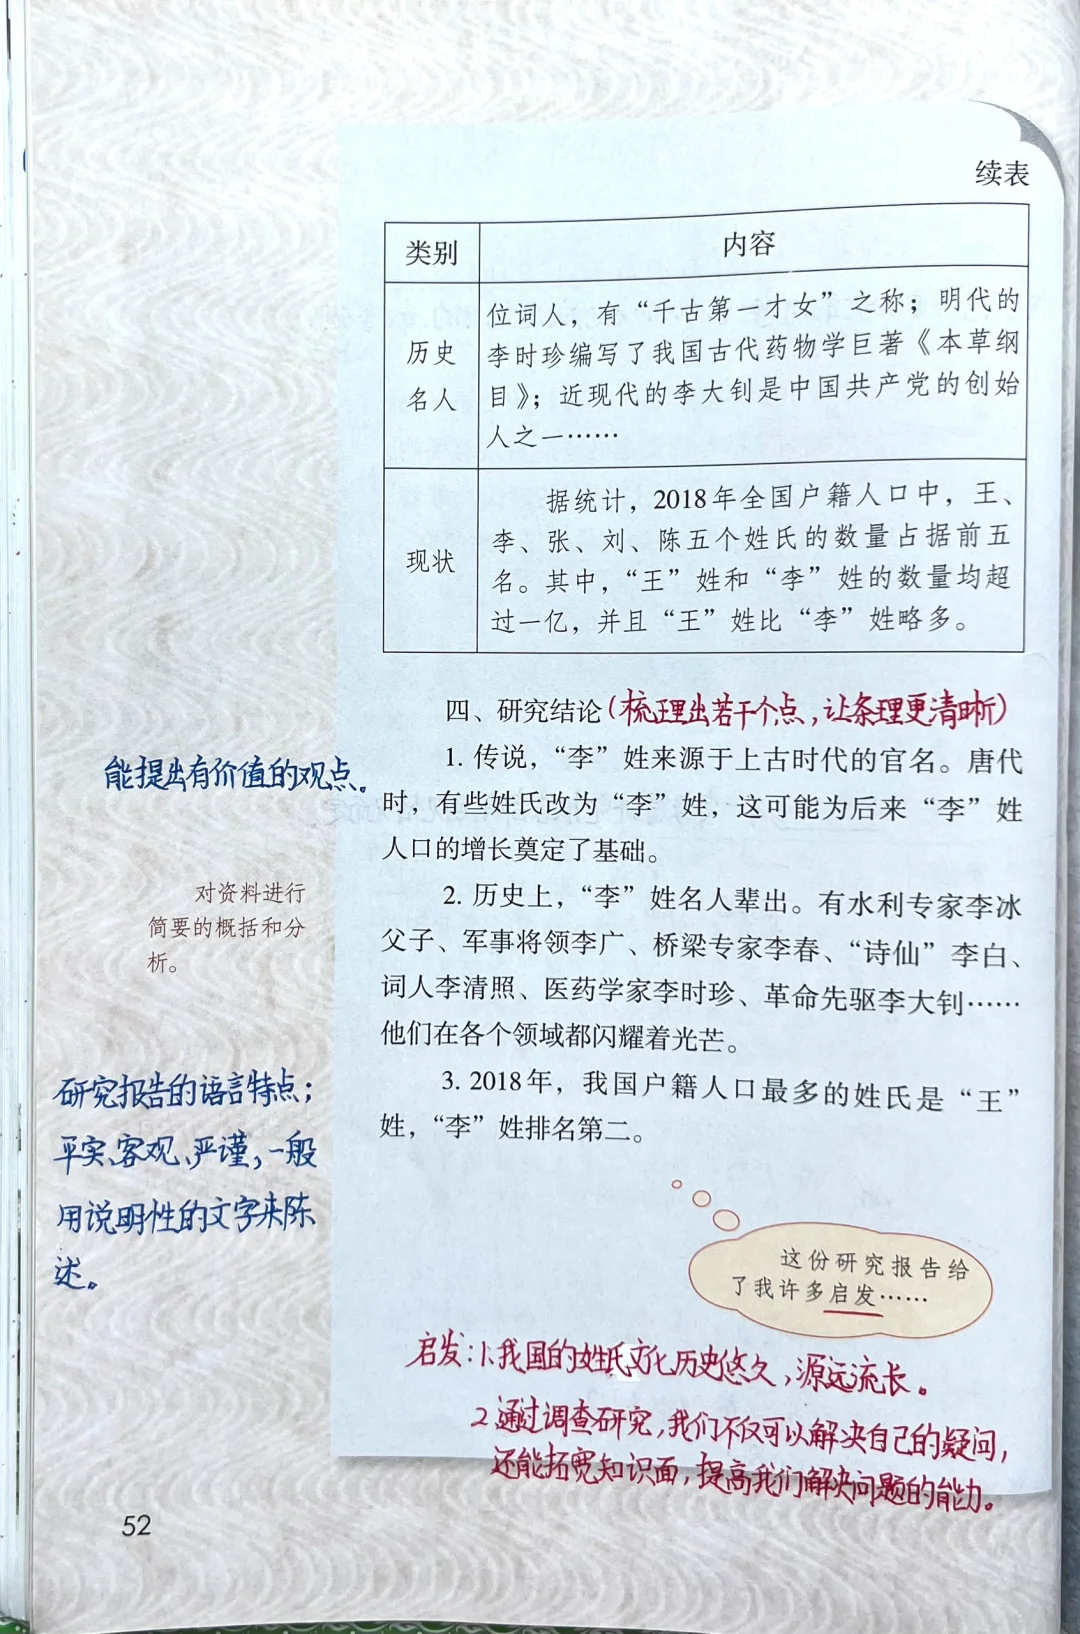 续表
类别
内容
历史
名人
位词人，有“千古第一才女”之称；明代的
李时珍编写了我国古代药物学巨著《本草纲
目》；近现代的李大钊是中国共产党的创始
人之一……
现状
据统计，2018年全国户籍人口中，王、
李、张、刘、陈五个姓氏的数量占据前五
名。其中，“王”姓和“李”姓的数量均超
过一亿，并且“王”姓比“李”姓略多。
四、研究结论(梳理出若干个点，让条理更清晰)
能提出有价值的观点。
1. 传说，“李”姓来源于上古时代的官名。唐代
时，有些姓氏改为“李”姓，这可能为后来“李”姓
人口的增长奠定了基础。
对资料进行
简要的概括和分
析。
2. 历史上，“李”姓名人辈出。有水利专家李冰
父子、军事将领李广、桥梁专家李春、“诗仙”李白、
词人李清照、医药学家李时珍、革命先驱李大钊……
他们在各个领域都闪耀着光芒。
研究报告的语言特点；
平实、客观、严谨，一般
用说明性的文字来陈
述。
3. 2018年，我国户籍人口最多的姓氏是“王”
姓，“李”姓排名第二。
这份研究报告给
了我许多启发……
启发：1.我国的姓氏文化历史悠久，源远流长。
2.通过调查研究，我们不仅可以解决自己的疑问，
还能拓宽知识面，提高我们解决问题的能力。
52